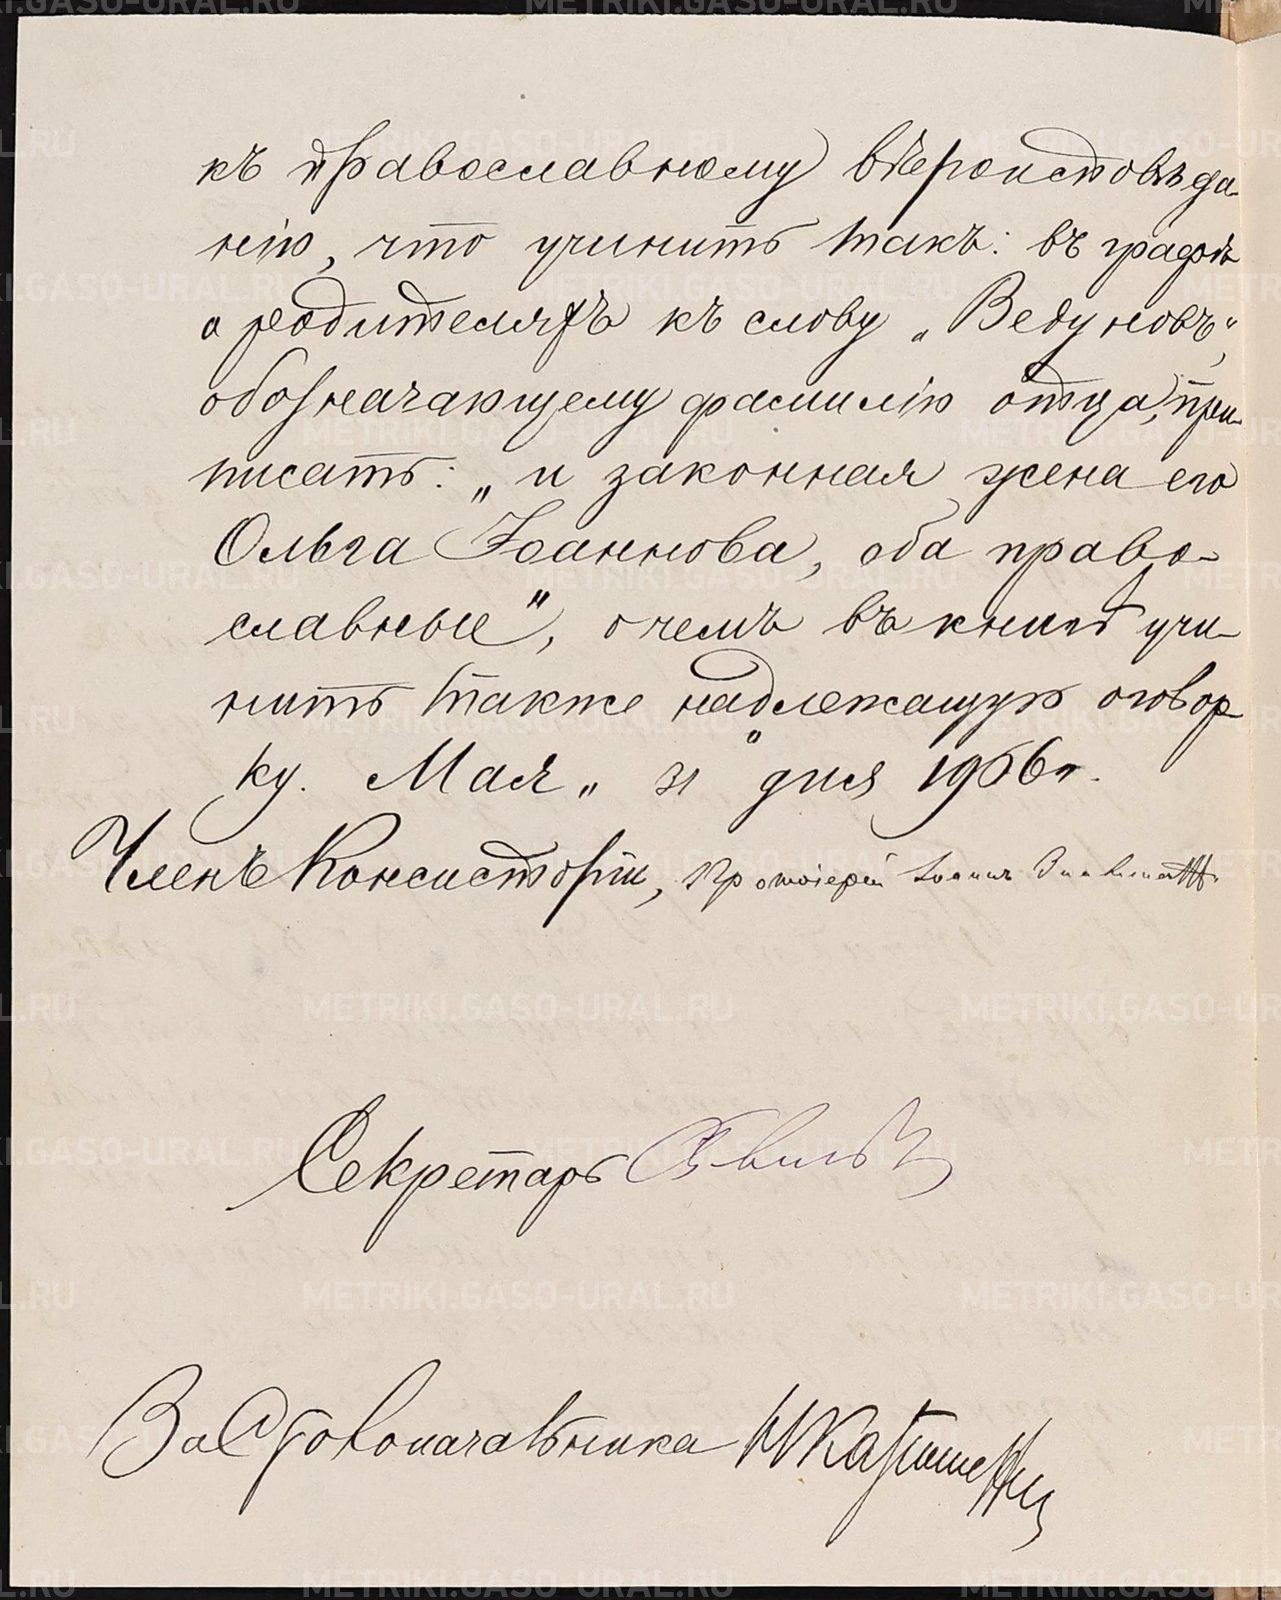 къ православному вѣроисповѣда-
нію, что учинить такъ: въ графѣ
о родителяхъ къ слову „Ведуновъ“,
обозначающему фамилію отца, при-
писать: „и законная жена его
Ольга Іоаннова, оба право-
славные“, о чемъ въ книгѣ учи-
нить также надлежащую оговор-
ку. Мая „31“ дня 1906 г.
Членъ Консисторіи, Протоіерей Іоаннъ
Секретарь
За Столоначальника
METRIKI.GASO-URAL.RU